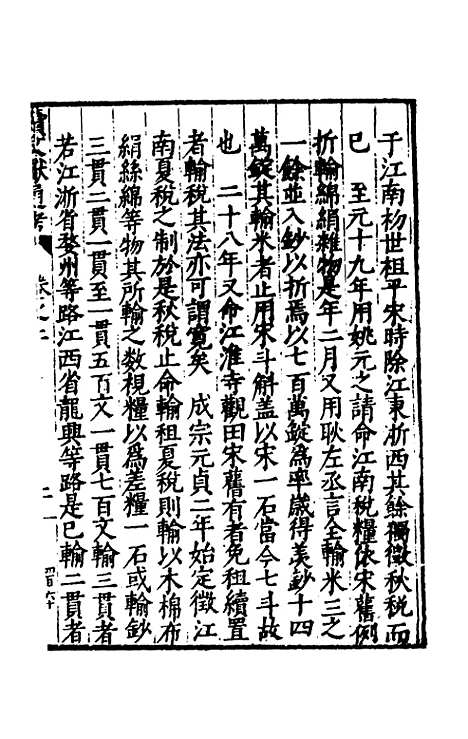 于江南初世祖平宋時除江東浙西其餘獨徵秋税而
已　至元十九年用姚元之請命江南税糧依宋舊例
折輸綿絹雜物是年二月又用耿左丞言全輸米三之
一餘並入鈔以折焉以七百萬錠為率歲得羡鈔十四
萬錠其輸米者止用宋斗斛盖以宋一石當今七斗故
也　二十八年又命江淮寺觀田宋舊有者免租續置
者輸税其法亦可謂寛矣　成宗元貞二年始定徵江
南夏税之制於是秋税止命輸租夏税則輸以木棉布
絹絲綿等物其所輸之数視糧以為差糧一石或輸鈔
三貫二貫一貫至一貫五百文一貫七百文輸三貫者
若江浙省婺州等路江西省龍興等路是已輸二貫者
續文獻通考　卷之二